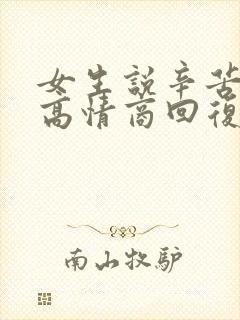 女生說辛苦
高情商回復
南山牧驴